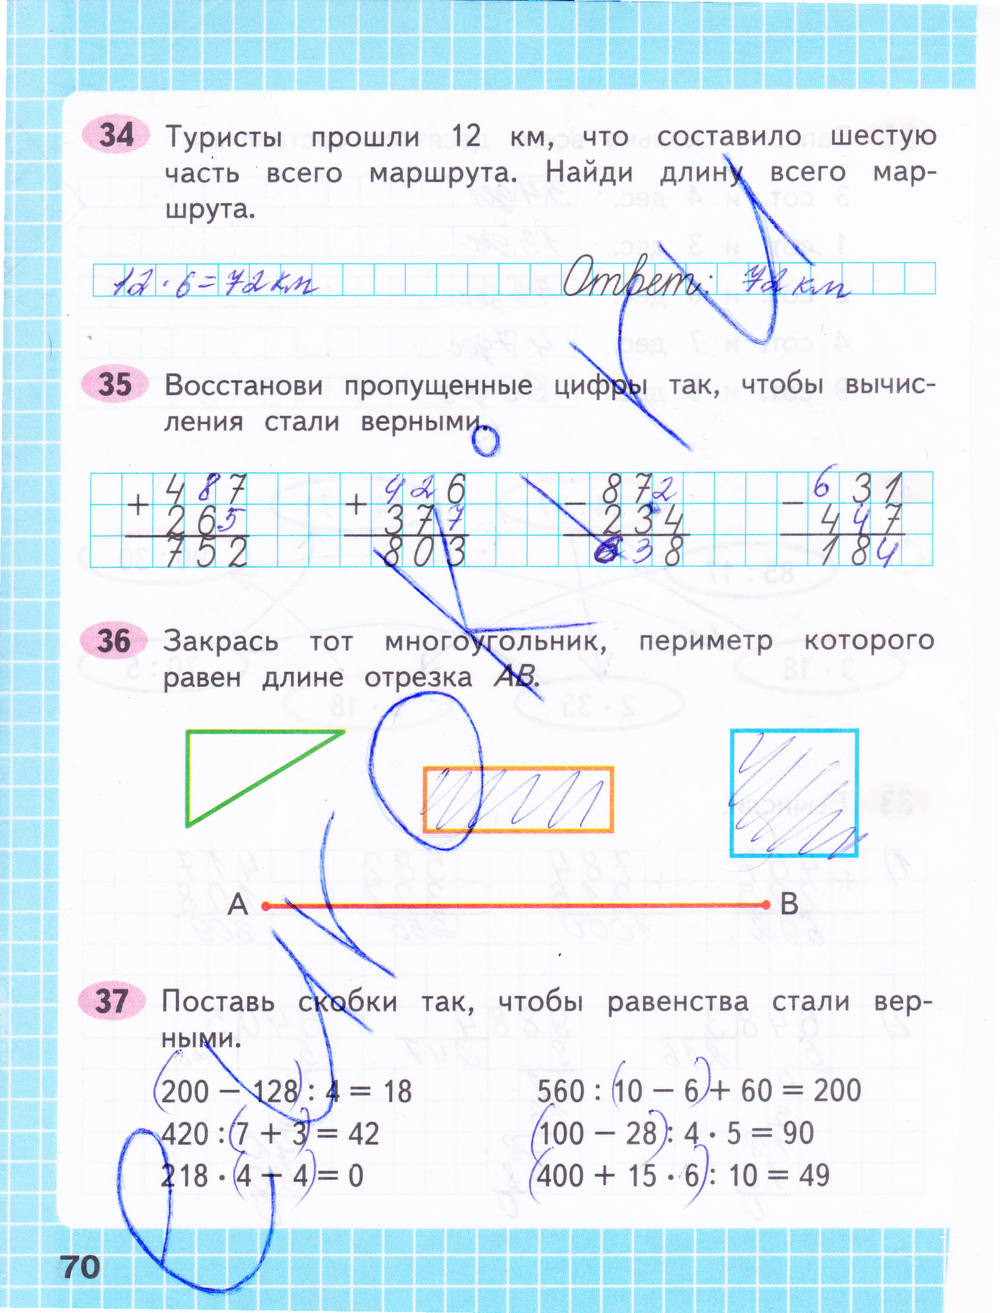 34 Туристы прошли 12 км, что составило шестую
часть всего маршрута. Найди длину всего мар-
шрута.
12 · 6 = 72 км Ответ: 72 км
35 Восстанови пропущенные цифры так, чтобы вычис-
ления стали верными.
+ 487 + 426 − 872 − 631
265 377 234 447
752 803 638 184
36 Закрась тот многоугольник, периметр которого
равен длине отрезка AB.
A B
37 Поставь скобки так, чтобы равенства стали вер-
ными.
(200 − 128) : 4 = 18 560 : (10 − 6) + 60 = 200
420 : (7 + 3) = 42 (100 − 28) : 4 · 5 = 90
218 · (4 − 4) = 0 (400 + 15 · 6) : 10 = 49
70